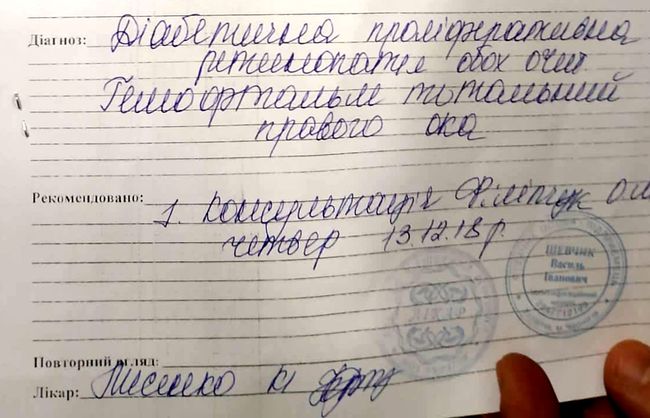 Діагноз: Діабетична проліферативна
ретинопатія обох очей
Гемофтальм тотальний
правого ока
Рекомендовано:
1. Консультація Філіпчук О.
четвер 13.12.18 р
ШЕВЧИК
Василь
Іванович
ЛІКАР
Повторний огляд:
Лікар: